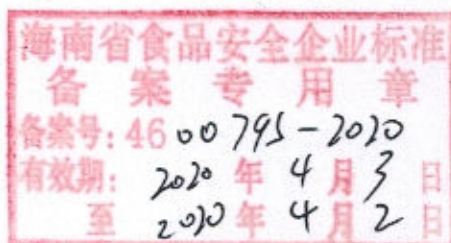 海南省食品安全企业标准
备案专用章
备案号: 4600795-2020
有效期: 2020年4月3日
至2020年4月2日